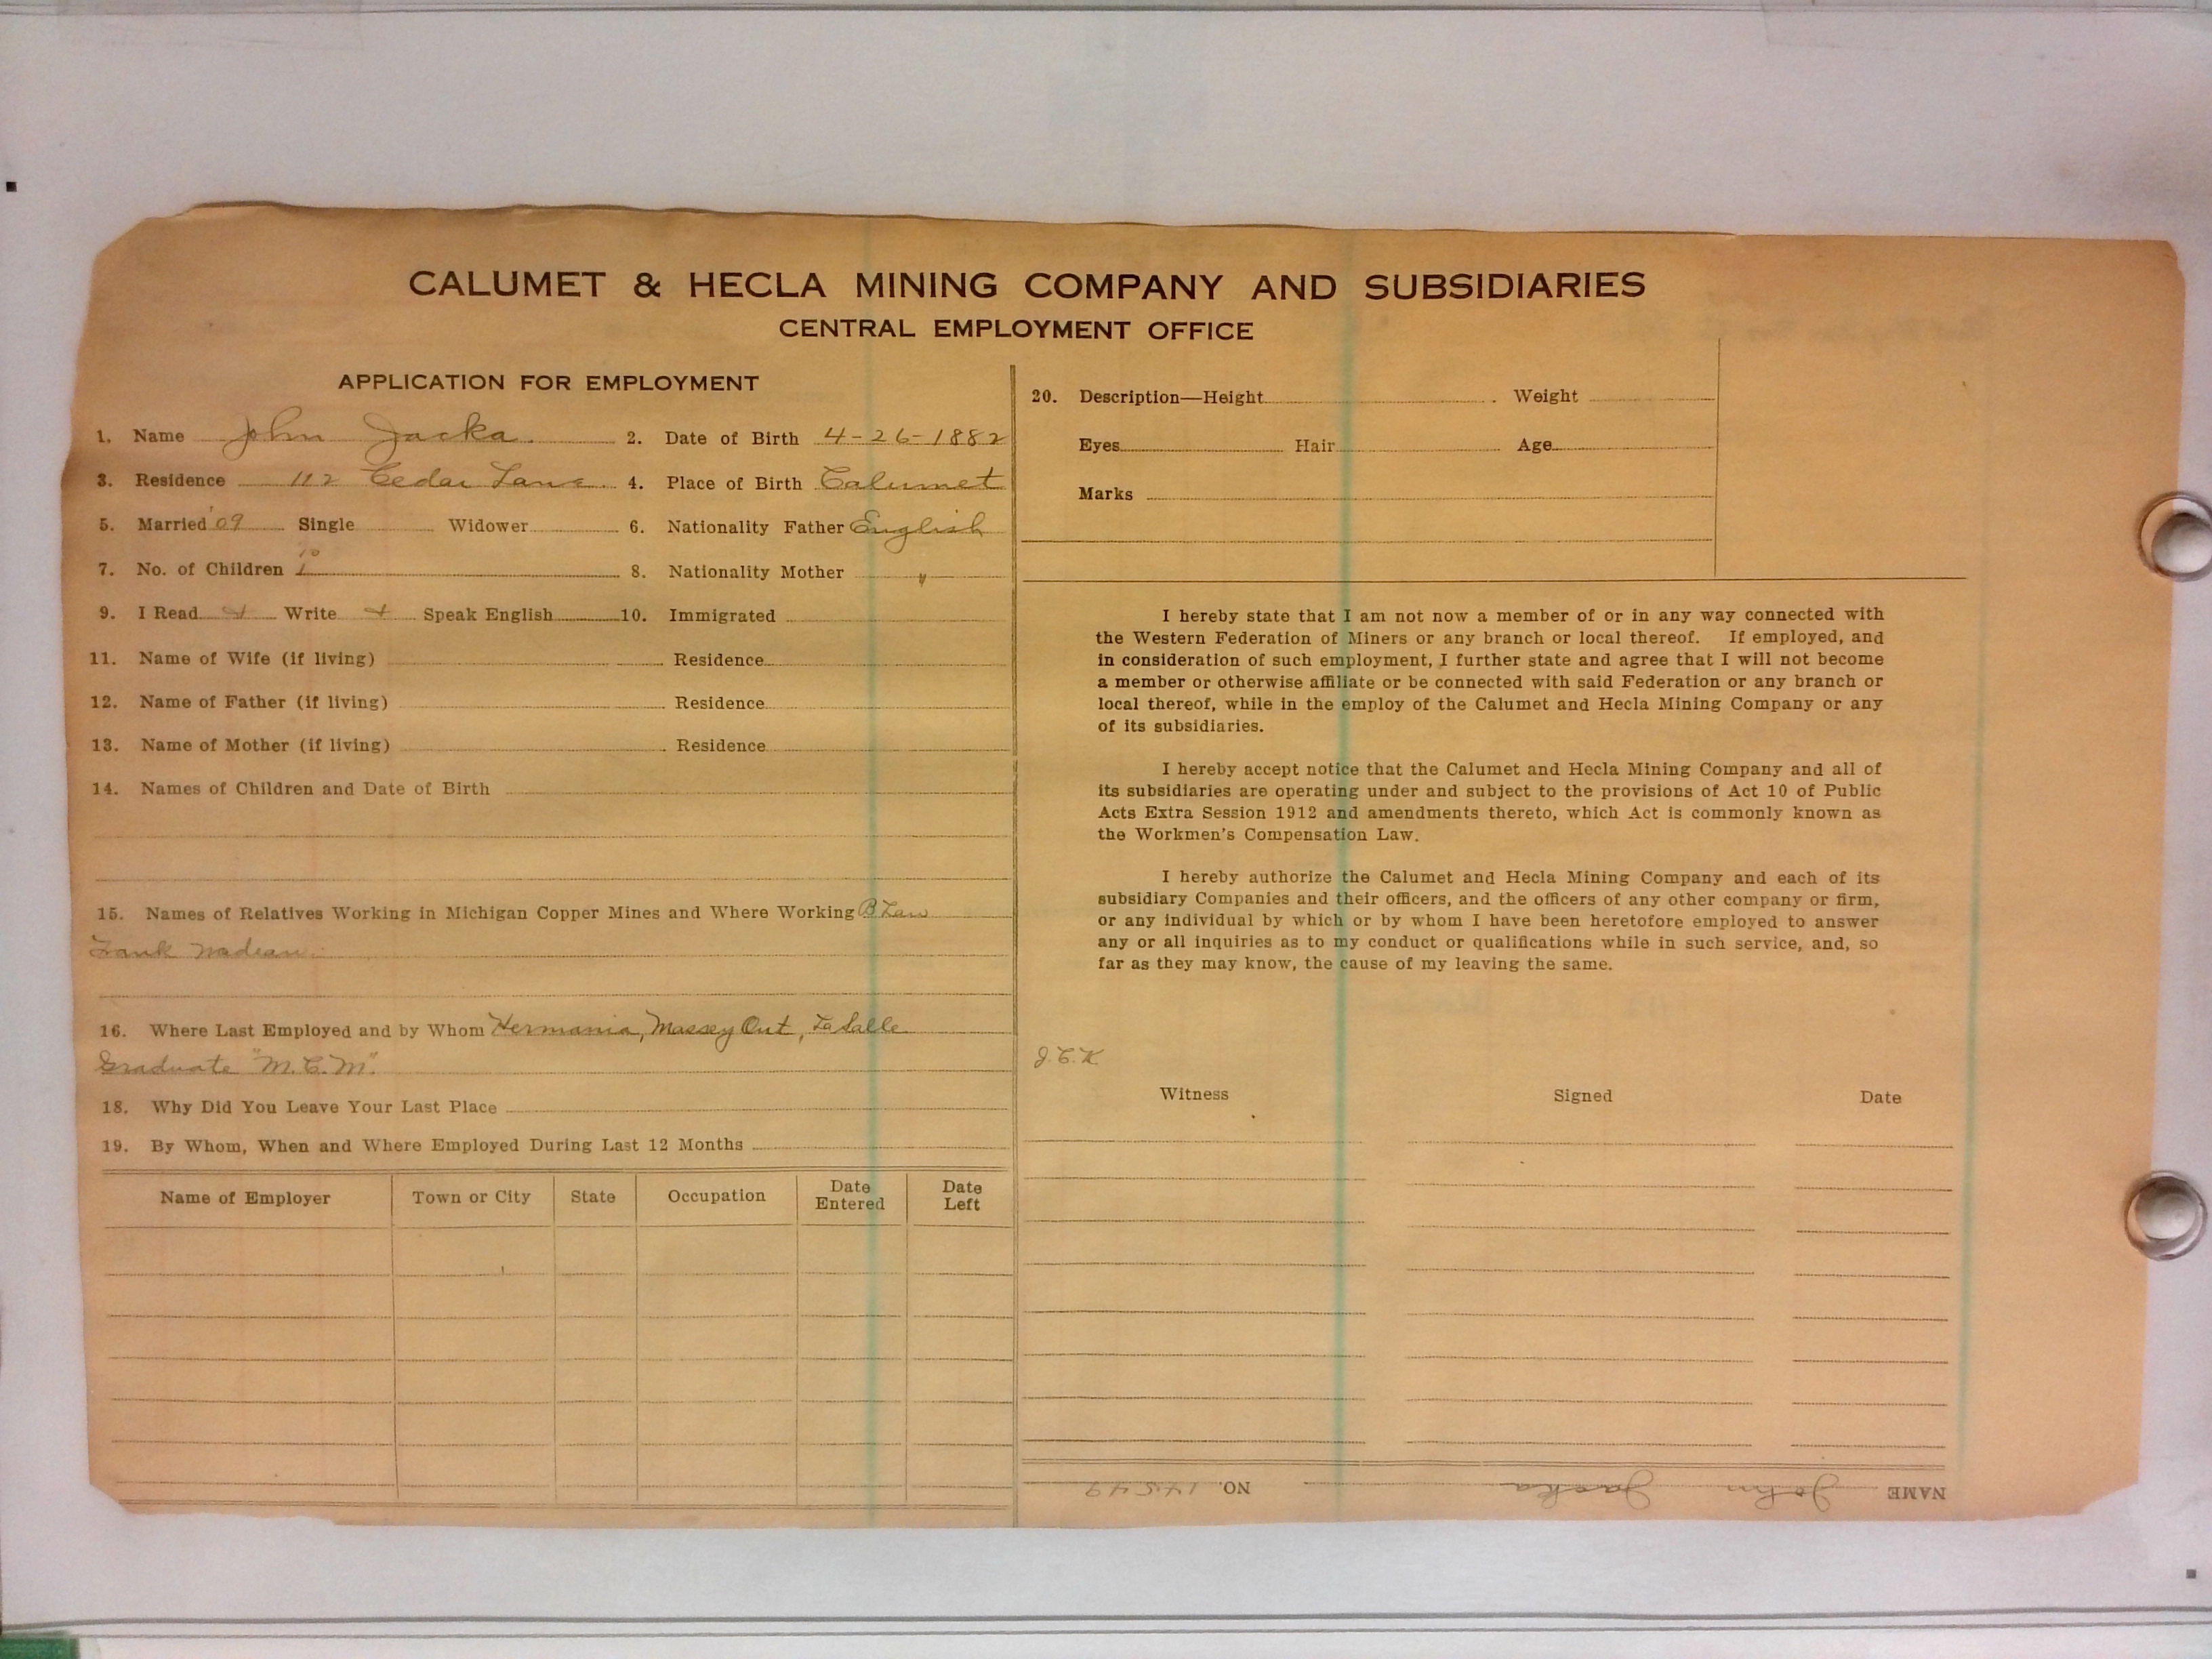 CALUMET & HECLA MINING COMPANY AND SUBSIDIARIES
CENTRAL EMPLOYMENT OFFICE
APPLICATION FOR EMPLOYMENT
1. Name John Jacka. 2. Date of Birth 4-26-1882
3. Residence 112 Cedar Lane 4. Place of Birth Calumet
5. Married '09 Single Widower 6. Nationality Father English
7. No. of Children 8. Nationality Mother "
9. I Read Write Speak English 10. Immigrated
11. Name of Wife (if living) Residence
12. Name of Father (if living) Residence
13. Name of Mother (if living) Residence
14. Names of Children and Date of Birth
15. Names of Relatives Working in Michigan Copper Mines and Where Working B Law
Frank Nadeau.
16. Where Last Employed and by Whom Hermania, Massey Ont, LaSalle
Graduate "M.C.M."
18. Why Did You Leave Your Last Place
19. By Whom, When and Where Employed During Last 12 Months
Name of Employer Town or City State Occupation Date Entered Date Left
20. Description—Height Weight
Eyes Hair Age
Marks
I hereby state that I am not now a member of or in any way connected with
the Western Federation of Miners or any branch or local thereof. If employed, and
in consideration of such employment, I further state and agree that I will not become
a member or otherwise affiliate or be connected with said Federation or any branch or
local thereof, while in the employ of the Calumet and Hecla Mining Company or any
of its subsidiaries.
I hereby accept notice that the Calumet and Hecla Mining Company and all of
its subsidiaries are operating under and subject to the provisions of Act 10 of Public
Acts Extra Session 1912 and amendments thereto, which Act is commonly known as
the Workmen's Compensation Law.
I hereby authorize the Calumet and Hecla Mining Company and each of its
subsidiary Companies and their officers, and the officers of any other company or firm,
or any individual by which or by whom I have been heretofore employed to answer
any or all inquiries as to my conduct or qualifications while in such service, and, so
far as they may know, the cause of my leaving the same.
J.C.K
Witness Signed Date
NAME John Jacka NO. 14549